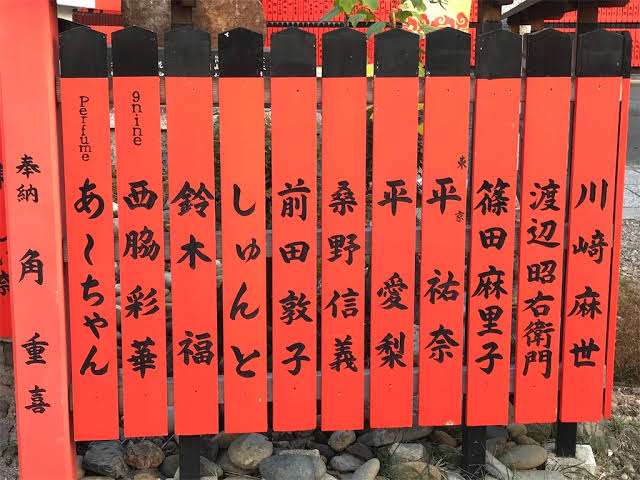 川崎麻世
渡辺昭右衛門
篠田麻里子
東京 平祐奈
平愛梨
桑野信義
前田敦子
しゅんと
鈴木福
9nine 西脇彩華
Perfume あ〜ちゃん
奉納 角重喜